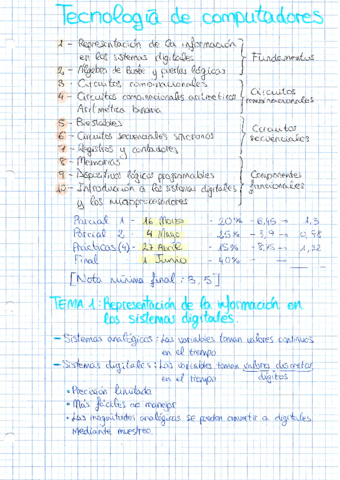 Tecnología de computadores
1 - Representación de la información
en los sistemas digitales
2 - Álgebra de Boole y puertas lógicas
Fundamentos
3 - Circuitos combinacionales
4 - Circuitos combinacionales aritméticos
Aritmética binaria
Circuitos
combinacionales
5 - Biestables
6 - Circuitos secuenciales síncronos
7 - Registros y contadores
Circuitos
secuenciales
8 - Memorias
9 - Dispositivos lógicos programables
10 - Introducción a los sistemas digitales
y los microprocesadores
Componentes
funcionales
Parcial 1 - 16 Marzo - 20% - 6,45 → 1,3
Parcial 2 - 4 Mayo - 25% - 3,9 → 0,98
Prácticas (4) - 27 Abril - 15% - 8,75 → 1,32
Final 1 Junio - 40% →
[Nota mínima final: 3,5]
TEMA 1: Representación de la información en
los sistemas digitales.
- Sistemas analógicos: Las variables toman valores continuos
en el tiempo
- Sistemas digitales: Las variables toman valores discretos
en el tiempo dígitos
• Precisión limitada
• Más fáciles de manejar
• Las magnitudes analógicas se pueden convertir a digitales
mediante muestreo.